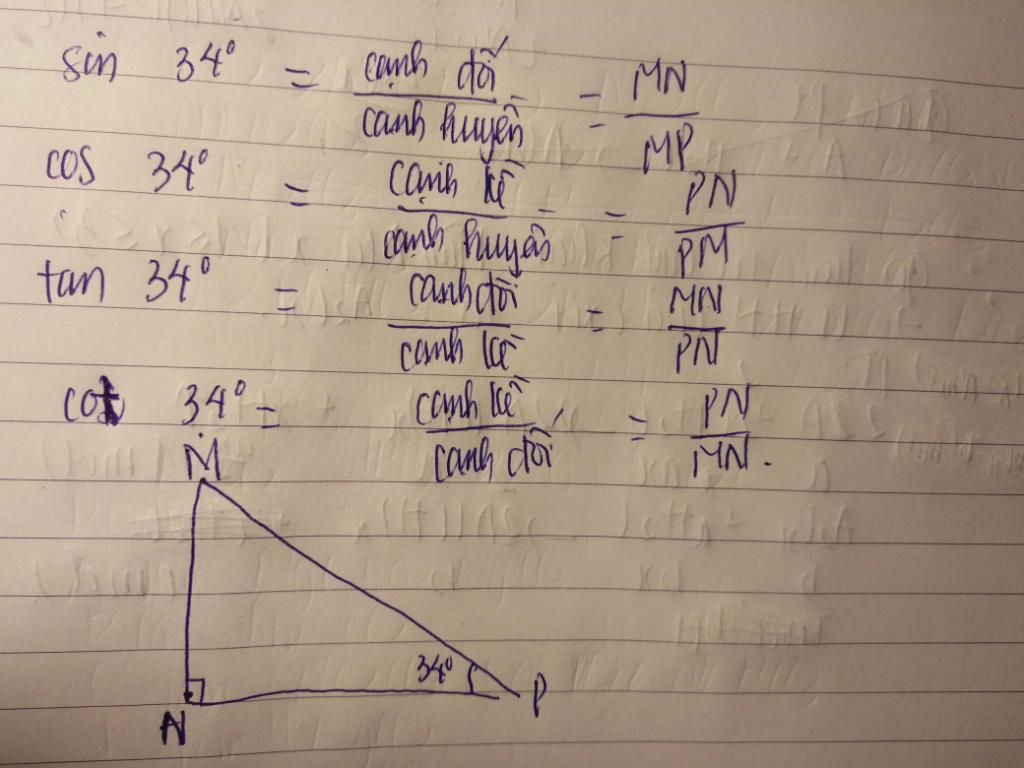 sin 34° = cạnh đối / cạnh huyền = MN / MP
cos 34° = cạnh kề / cạnh huyền = PN / PM
tan 34° = cạnh đối / cạnh kề = MN / PN
cot 34° = cạnh kề / cạnh đối = PN / MN.
M
34°
N P